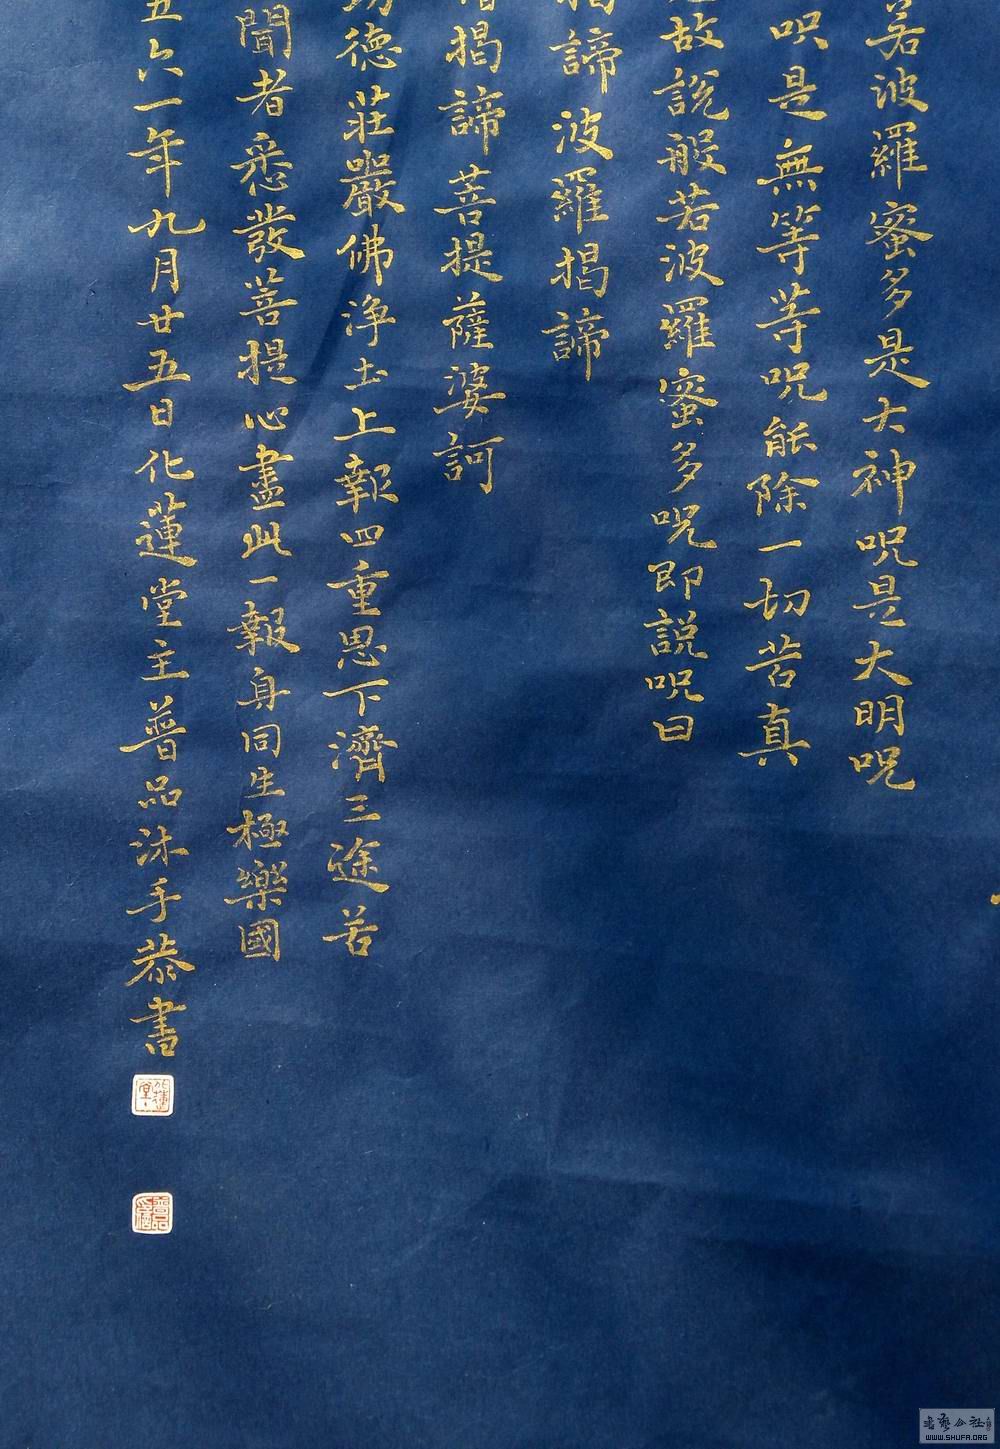 若波羅蜜多是大神呪是大明呪
呪是無等等呪能除一切苦真
故說般若波羅蜜多呪即說呪曰
揭諦波羅揭諦
揭諦菩提薩婆訶
功德莊嚴佛淨土上報四重恩下濟三途苦
聞者悉發菩提心盡此一報身同生極樂國
五六一年九月廿五日化蓮堂主普品沐手恭書
化蓮堂
WWW.SHUFA.ORG